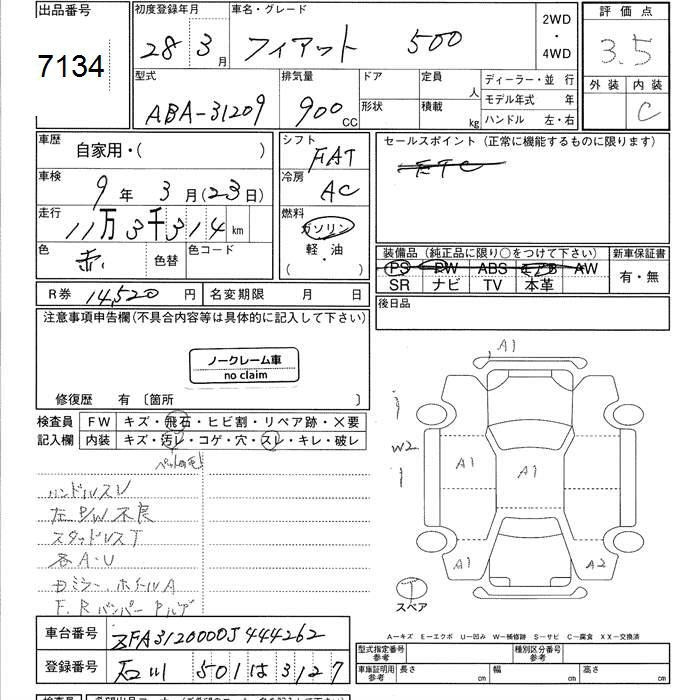 出品番号
7134
初度登録年月
28年 3月
車名・グレード
フィアット 500
2WD
・
4WD
評価点
3.5
外装 内装
C
型式
ABA-31209
排気量
900 CC
ドア
形状
定員 人
積載 kg
ディーラー・並 行
モデル年式 年
ハンドル 左・右
車歴
自家用・( )
車検
9年 3月(23日)
走行
11万3千314 km
色
赤
色替
色コード
シフト
FAT
冷房
AC
燃料
ガソリン
軽・油
( )
セールスポイント(正常に機能するものに限ります)
ETC
装備品(純正品に限り○をつけて下さい)
PS PW ABS エアB AW
SR ナビ TV 本革
新車保証書
有・無
R券 14,520円
名変期限 月 日
後日品
注意事項申告欄(不具合内容等は具体的に記入して下さい)
ノークレーム車
no claim
修復歴 有 〔箇所 〕
検査員
記入欄
FW キズ・飛石・ヒビ割・リペア跡・×要
内装 キズ・汚レ・コゲ・穴・スレ・キレ・破レ
ペットの毛
ハンドルスレ
左P/W不良
スタッドレスT
各A・U
ドミラー、ホイールA
F.Rバンパー
A1
W2
A1
A1
A1
A2
スペア
A-キズ E-エクボ U-凹み W-補修跡 S-サビ C-腐食 XX-交換済
車台番号
ZFA3120000J444262
登録番号
石川 501 は 3127
型式指定番号
参考
種別区分番号
参考
車庫証明用
参考
長さ
幅
高さ